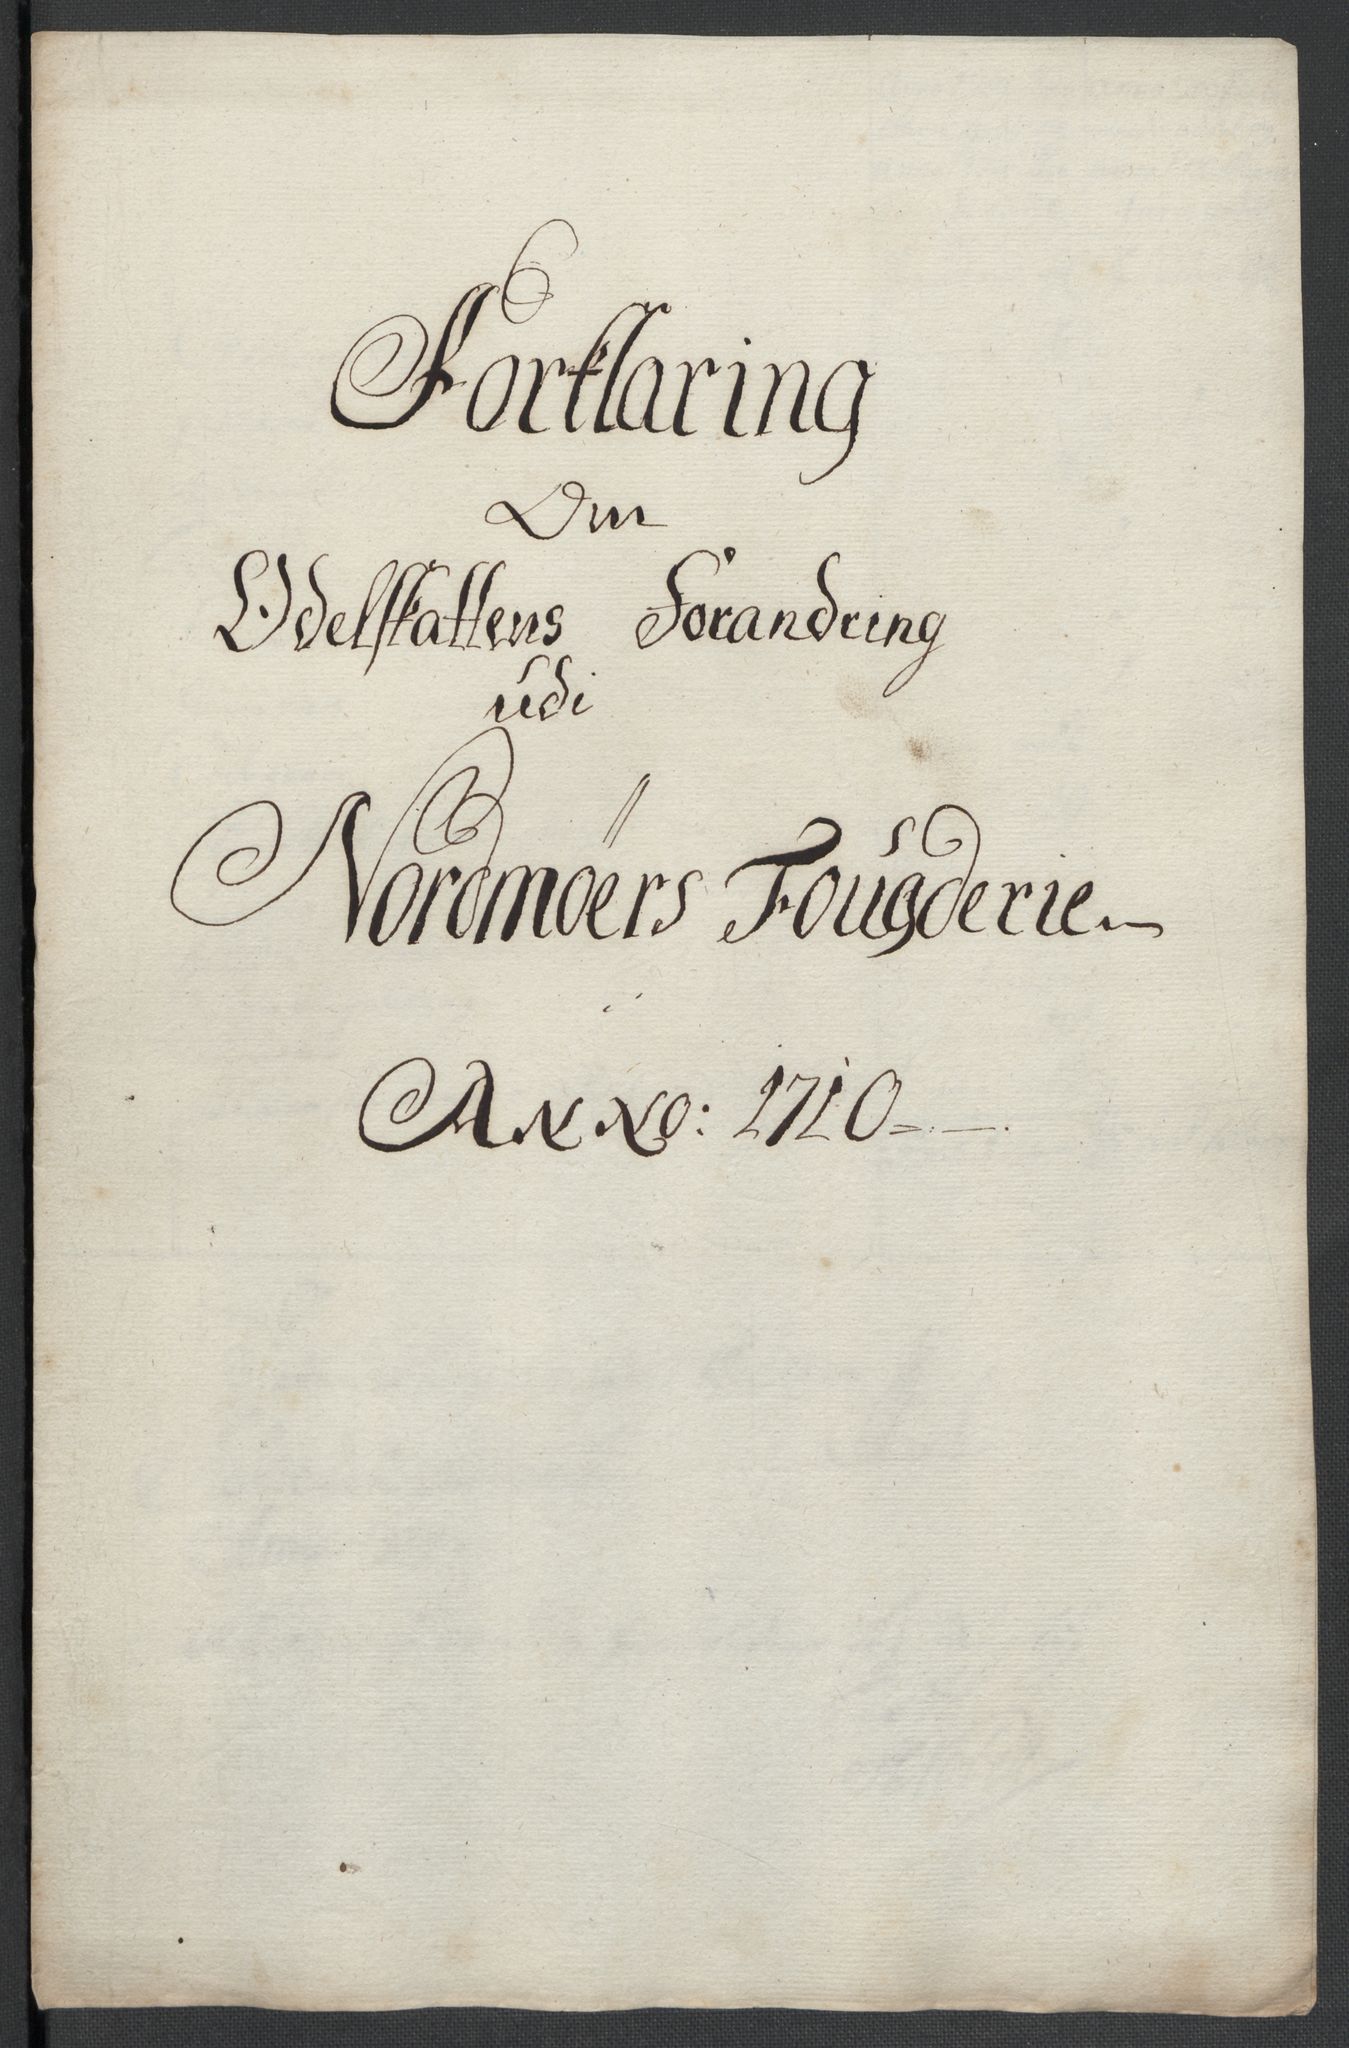 Forklaring
Om
Odelskattens Forandring
udi
Nordmøers Fougderie
Anno: 1710